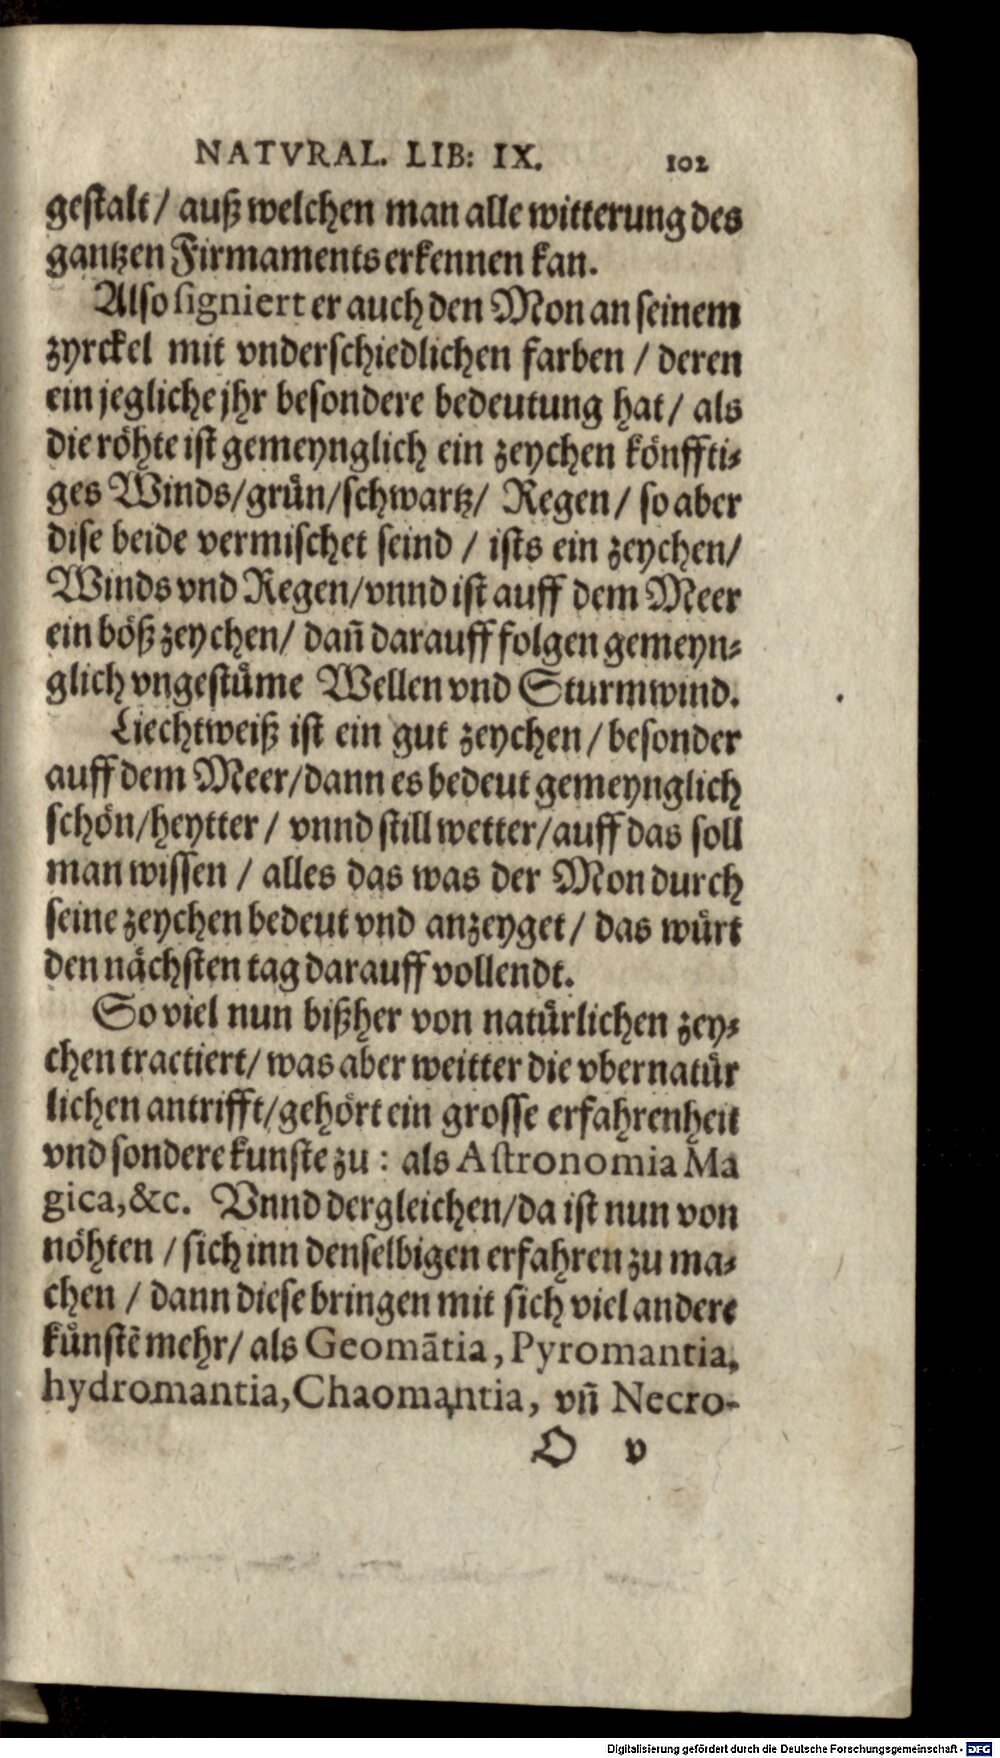 NATVRAL. LIB: IX. 102
gestalt / auß welchen man alle witterung des
gantzen Firmaments erkennen kan.
Also signiert er auch den Mon an seinem
zyrckel mit vnderschiedlichen farben / deren
ein jegliche jhr besondere bedeutung hat / als
die röhte ist gemeynglich ein zeychen könffti-
ges Winds/grün/schwartz/ Regen / so aber
dise beide vermischet seind / ists ein zeychen/
Winds vnd Regen/vnnd ist auff dem Meer
ein böß zeychen/ dañ darauff folgen gemeyn-
glich vngestüme Wellen vnd Sturmwind.
Liechtweiß ist ein gut zeychen / besonder
auff dem Meer/dann es bedeut gemeynglich
schön/heytter / vnnd still wetter/auff das soll
man wissen / alles das was der Mon durch
seine zeychen bedeut vnd anzeyget / das würt
den nächsten tag darauff vollendt.
So viel nun bißher von natürlichen zey-
chen tractiert/ was aber weitter die vbernatür
lichen antrifft/gehört ein grosse erfahrenheit
vnd sondere kunste zu : als Astronomia Ma
gica,&c. Vnnd dergleichen/da ist nun von
nöhten / sich inn denselbigen erfahren zu ma-
chen / dann diese bringen mit sich viel andere
künstē mehr/ als Geomātia, Pyromantia,
hydromantia, Chaomantia, vñ Necro-
O v
Digitalisierung gefördert durch die Deutsche Forschungsgemeinschaft - DFG